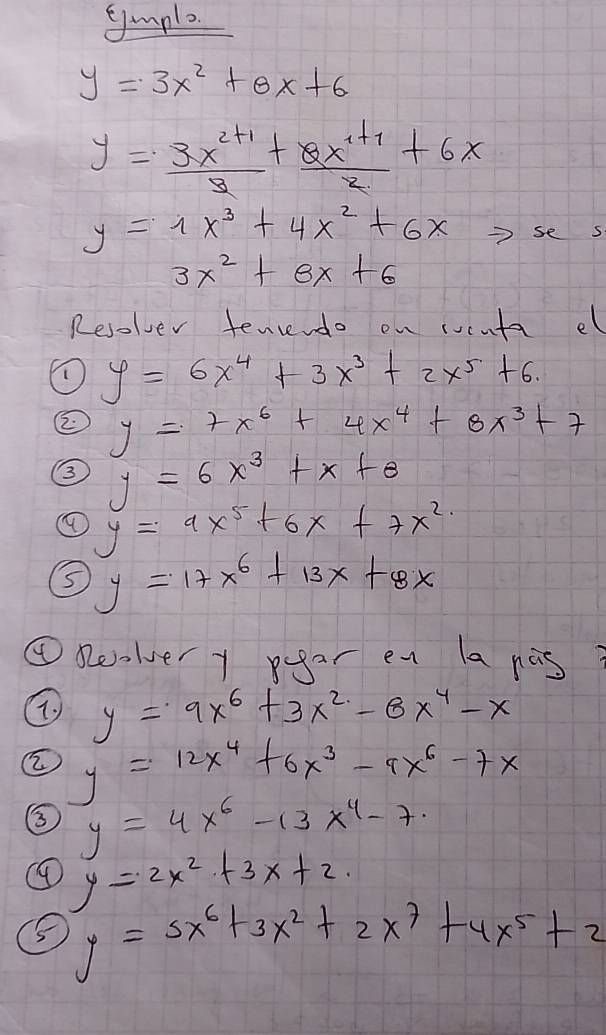 Ejmplo.
y = 3x² + 8x + 6
y = 3x²⁺¹/3 + 8x¹⁺¹/2 + 6x
y = 1x³ + 4x² + 6x => se s
3x² + 8x + 6
Resolver teniendo en cuenta el
① y = 6x⁴ + 3x³ + 2x⁵ + 6.
② y = 7x⁶ + 4x⁴ + 8x³ + 7
③ y = 6x³ + x + 8
④ y = 9x⁵ + 6x + 7x².
⑤ y = 17x⁶ + 13x + 8x
④ Resolver y pegar en la pág
①. y = 9x⁶ + 3x² - 8x⁴ - x
② y = 12x⁴ + 6x³ - 9x⁶ - 7x
③ y = 4x⁶ - 13x⁴ - 7.
④ y = 2x² + 3x + 2.
⑤ y = 5x⁶ + 3x² + 2x⁷ + 4x⁵ + 2